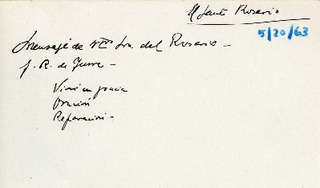 El Santo Rosario
5/20/63
Mensaje de Ntra Sra. del Rosario -
J. R. de
Vivir en gracia
Oración
Reparación -